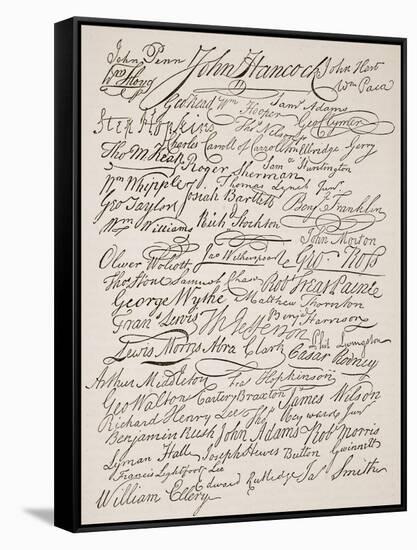 John Penn John Hancock John Hart
Wm Floyd Wm Paca
Geo Read Wm Hooper Saml Adams
Step Hopkins Thos Nelson Jr Geo Clymer
Charles Carroll of Carrollton Elbridge Gerry
Tho M Kean Roger Sherman Saml Huntington
Wm Whipple Thomas Lynch Junr
Geo Taylor Josiah Bartlett Benj Franklin
Wm Williams Richd Stockton
John Morton
Oliver Wolcott Jno Witherspoon Geo Ross
Thos Stone Samuel Chase Robt Treat Paine
George Wythe Matthew Thornton
Frans Lewis Th Jefferson Benj Harrison
Lewis Morris Abra Clark Phil Livingston
Cæsar Rodney
Arthur Middleton Fras Hopkinson
Geo Walton Carter Braxton James Wilson
Richard Henry Lee Thos Heyward Junr
Benjamin Rush John Adams Robt Morris
Lyman Hall Joseph Hewes Button Gwinnett
Francis Lightfoot Lee
Edward Rutledge Jas Smith
William Ellery